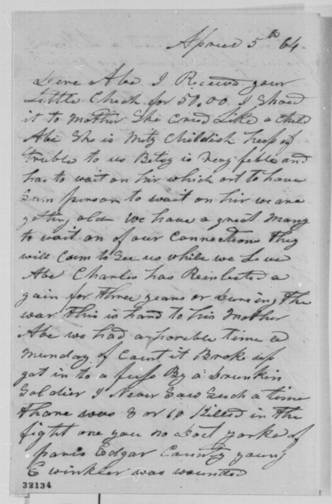 Aprile 5th 64.
Dere Abe I Received your
Little Check for 50.00 I shoed
it to Mother She cried Like a child
Abe She is Mity Childish heep of
truble to us Betsy is very feble and
has to wait on hir which ort to have
sum person to wait on hir we are
getting old We have a great many
to wait on of our Connections they
will Cum to See us while we Live
Abe Charles has Reinlisted a
gain for three years or During the
war this is hard to his Mother
Abe we had a horible time a
Munday of Court it Broke up
got in to a fuss By a Drunkin
Soldier I Never Saw Such a time
Thare was 8 or 10 Killed in the
fight one you no Doct yorke of
paris Edgar County young
E winkler was wounded
32134